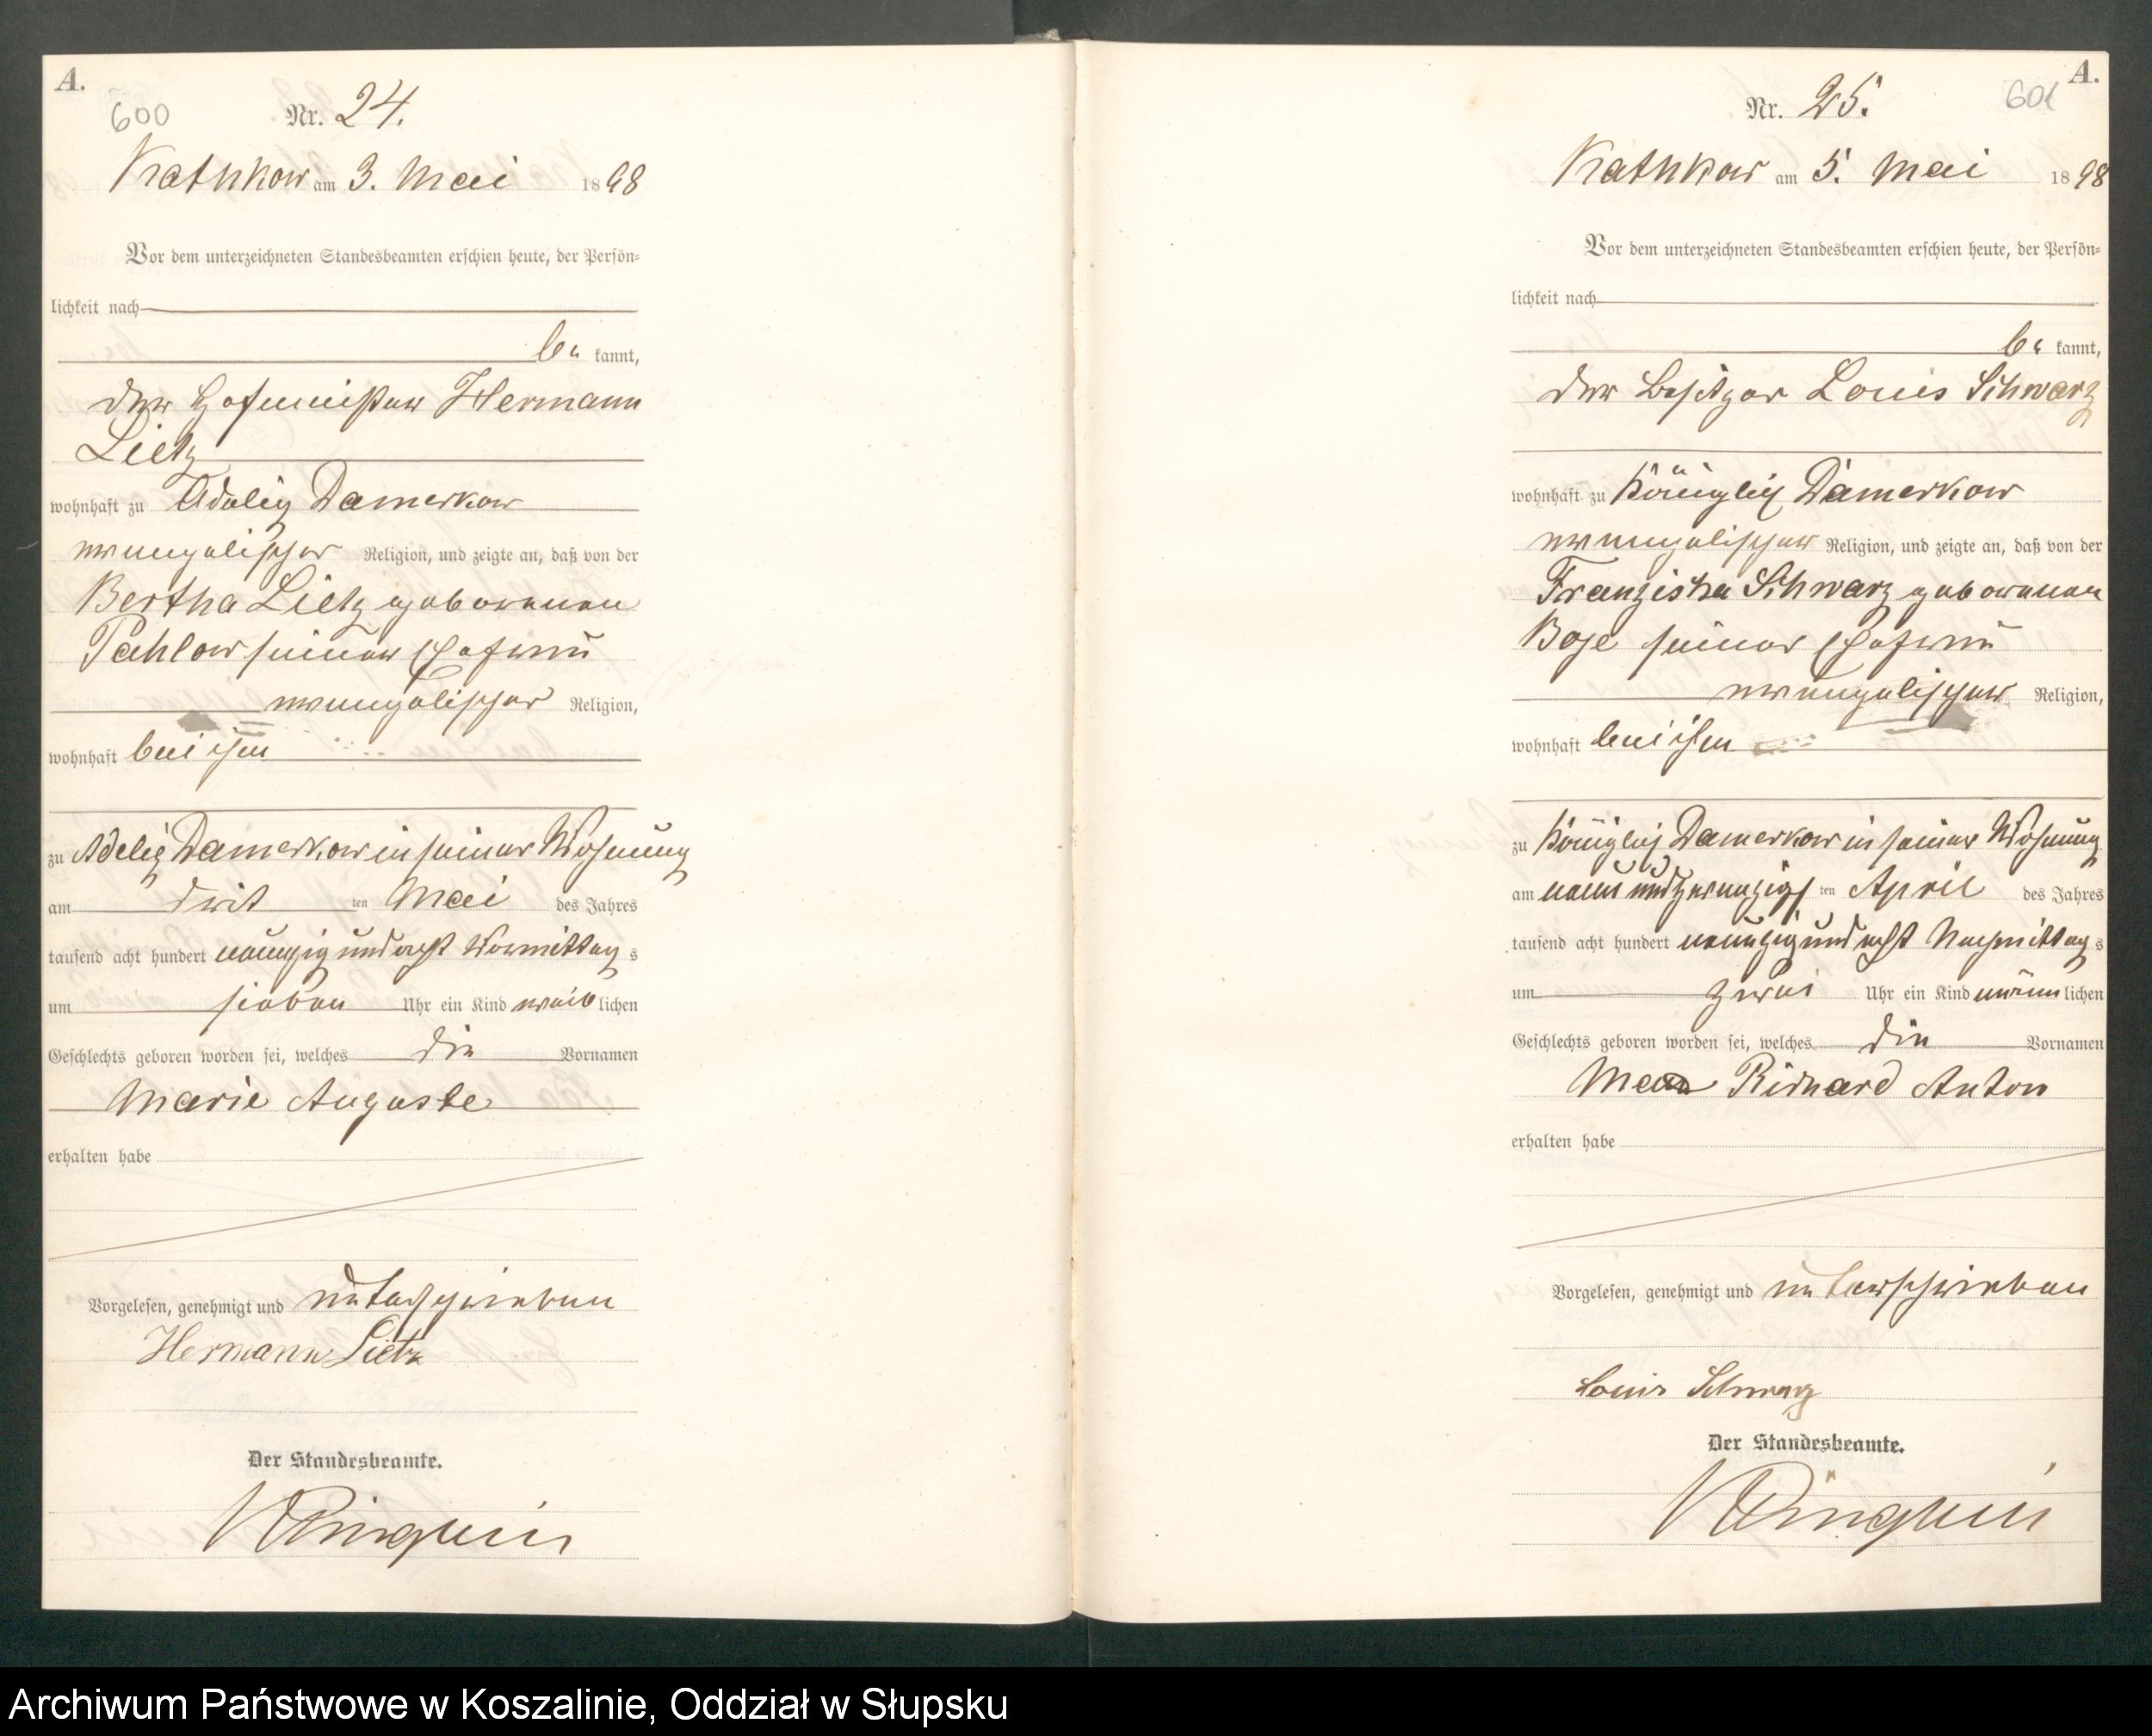 A.
600
Nr. 24.
Rathkow am 3. Mai 1898
Vor dem unterzeichneten Standesbeamten erschien heute, der Persön-
lichkeit nach
be kannt,
der Hofmeister Hermann
Lietz
wohnhaft zu Adelig Damerkow
evangelischer Religion, und zeigte an, daß von der
Bertha Lietz geborenen
Pahlow seiner Ehefrau
evangelischer Religion,
wohnhaft bei ihm
zu Adelig Damerkow in seiner Wohnung
am drit ten Mai des Jahres
tausend acht hundert neunzig und acht Vormittag s
um sieben Uhr ein Kind weib lichen
Geschlechts geboren worden sei, welches die Vornamen
Marie Auguste
erhalten habe
Vorgelesen, genehmigt und unterschrieben
Hermann Lietz
Der Standesbeamte.
A.
601
Nr. 25.
Rathkow am 5. Mai 1898
Vor dem unterzeichneten Standesbeamten erschien heute, der Persön-
lichkeit nach
be kannt,
der Besitzer Louis Schwarz
wohnhaft zu Königlich Damerkow
evangelischer Religion, und zeigte an, daß von der
Franziska Schwarz geborenen
Boje seiner Ehefrau
evangelischer Religion,
wohnhaft bei ihm
zu Königlich Damerkow in seiner Wohnung
am neun und zwanzigs ten April des Jahres
tausend acht hundert neunzig und acht Nachmittag s
um zwei Uhr ein Kind männ lichen
Geschlechts geboren worden sei, welches die Vornamen
Richard Anton
erhalten habe
Vorgelesen, genehmigt und unterschrieben
Louis Schwarz
Der Standesbeamte.
Archiwum Państwowe w Koszalinie, Oddział w Słupsku